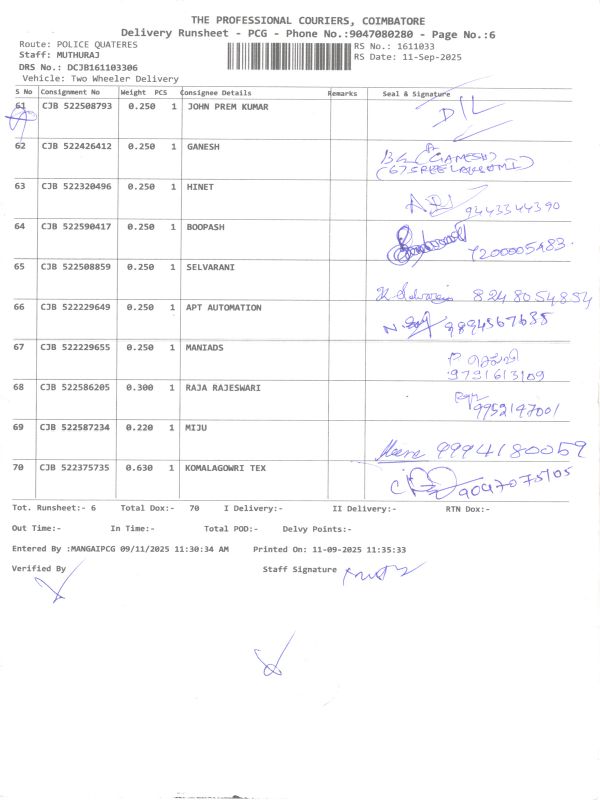 THE PROFESSIONAL COURIERS, COIMBATORE
Delivery Runsheet - PCG - Phone No.:9047080280 - Page No.:6
Route: POLICE QUATERES RS No.: 1611033
Staff: MUTHURAJ RS Date: 11-Sep-2025
DRS No.: DCJB161103306
Vehicle: Two Wheeler Delivery
S No Consignment No Weight PCS Consignee Details Remarks Seal & Signature
61 CJB 522508793 0.250 1 JOHN PREM KUMAR D/L
62 CJB 522426412 0.250 1 GANESH
(GAMESH)
63 CJB 522320496 0.250 1 HINET
9443344390
64 CJB 522590417 0.250 1 BOOPASH
7200005483
65 CJB 522508859 0.250 1 SELVARANI
8248054854
66 CJB 522229649 0.250 1 APT AUTOMATION
9894567635
67 CJB 522229655 0.250 1 MANIADS
9791613109
68 CJB 522586205 0.300 1 RAJA RAJESWARI
9952197001
69 CJB 522587234 0.220 1 MIJU
9994180059
70 CJB 522375735 0.630 1 KOMALAGOWRI TEX
9047075105
Tot. Runsheet:- 6 Total Dox:- 70 I Delivery:- II Delivery:- RTN Dox:-
Out Time:- In Time:- Total POD:- Delvy Points:-
Entered By :MANGAIPCG 09/11/2025 11:30:34 AM Printed On: 11-09-2025 11:35:33
Verified By Staff Signature